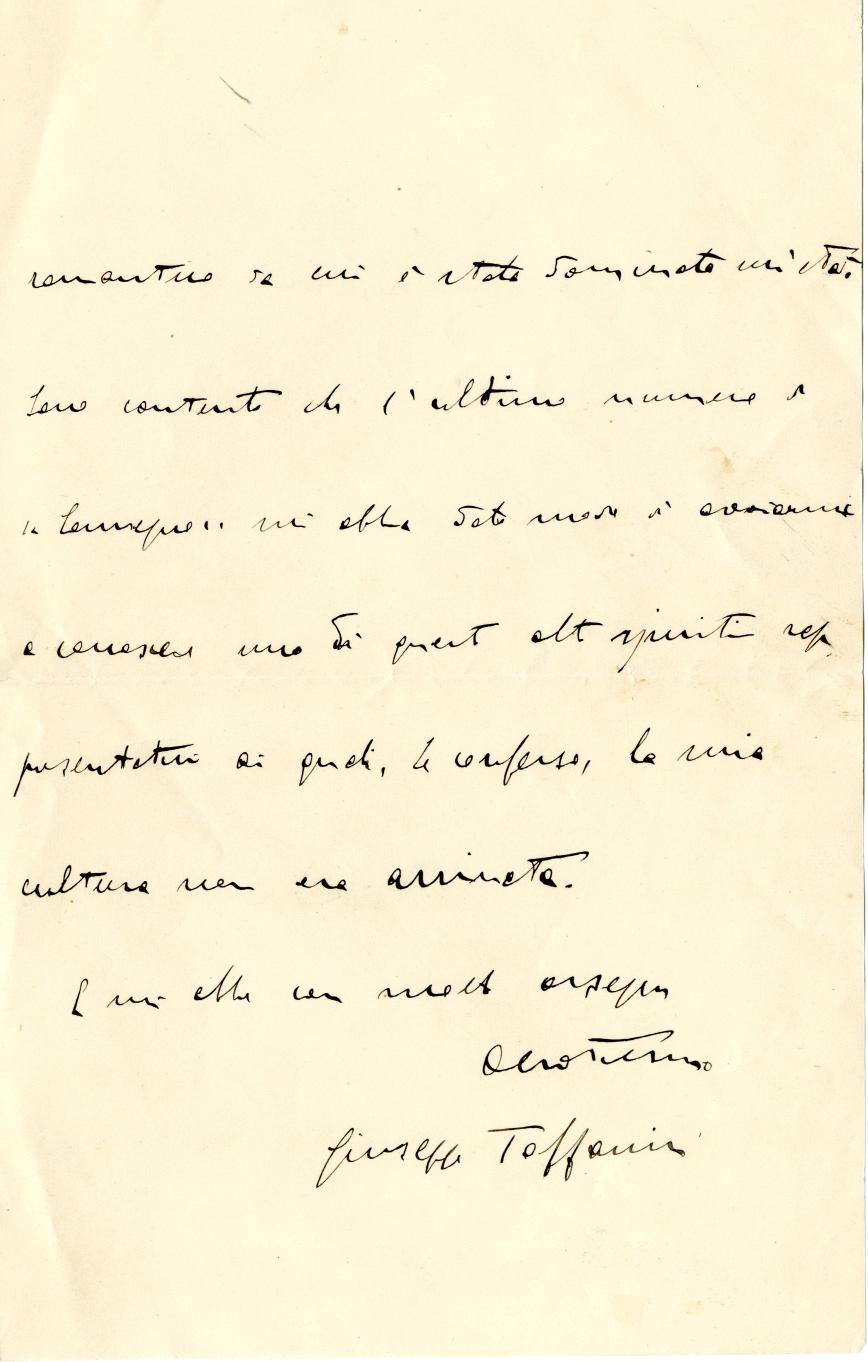 romantico da cui è stata dominata un'età.
Sono contento che l'ultimo numero di
"Convegno" mi abbia dato modo di avviarmi
a conoscere uno di questi alti spiriti rap
presentativi ai quali, lo confesso, la mia
cultura non era arrivata.
E mi abbia con molto ossequio
Devotissimo
Giuseppe Toffanin